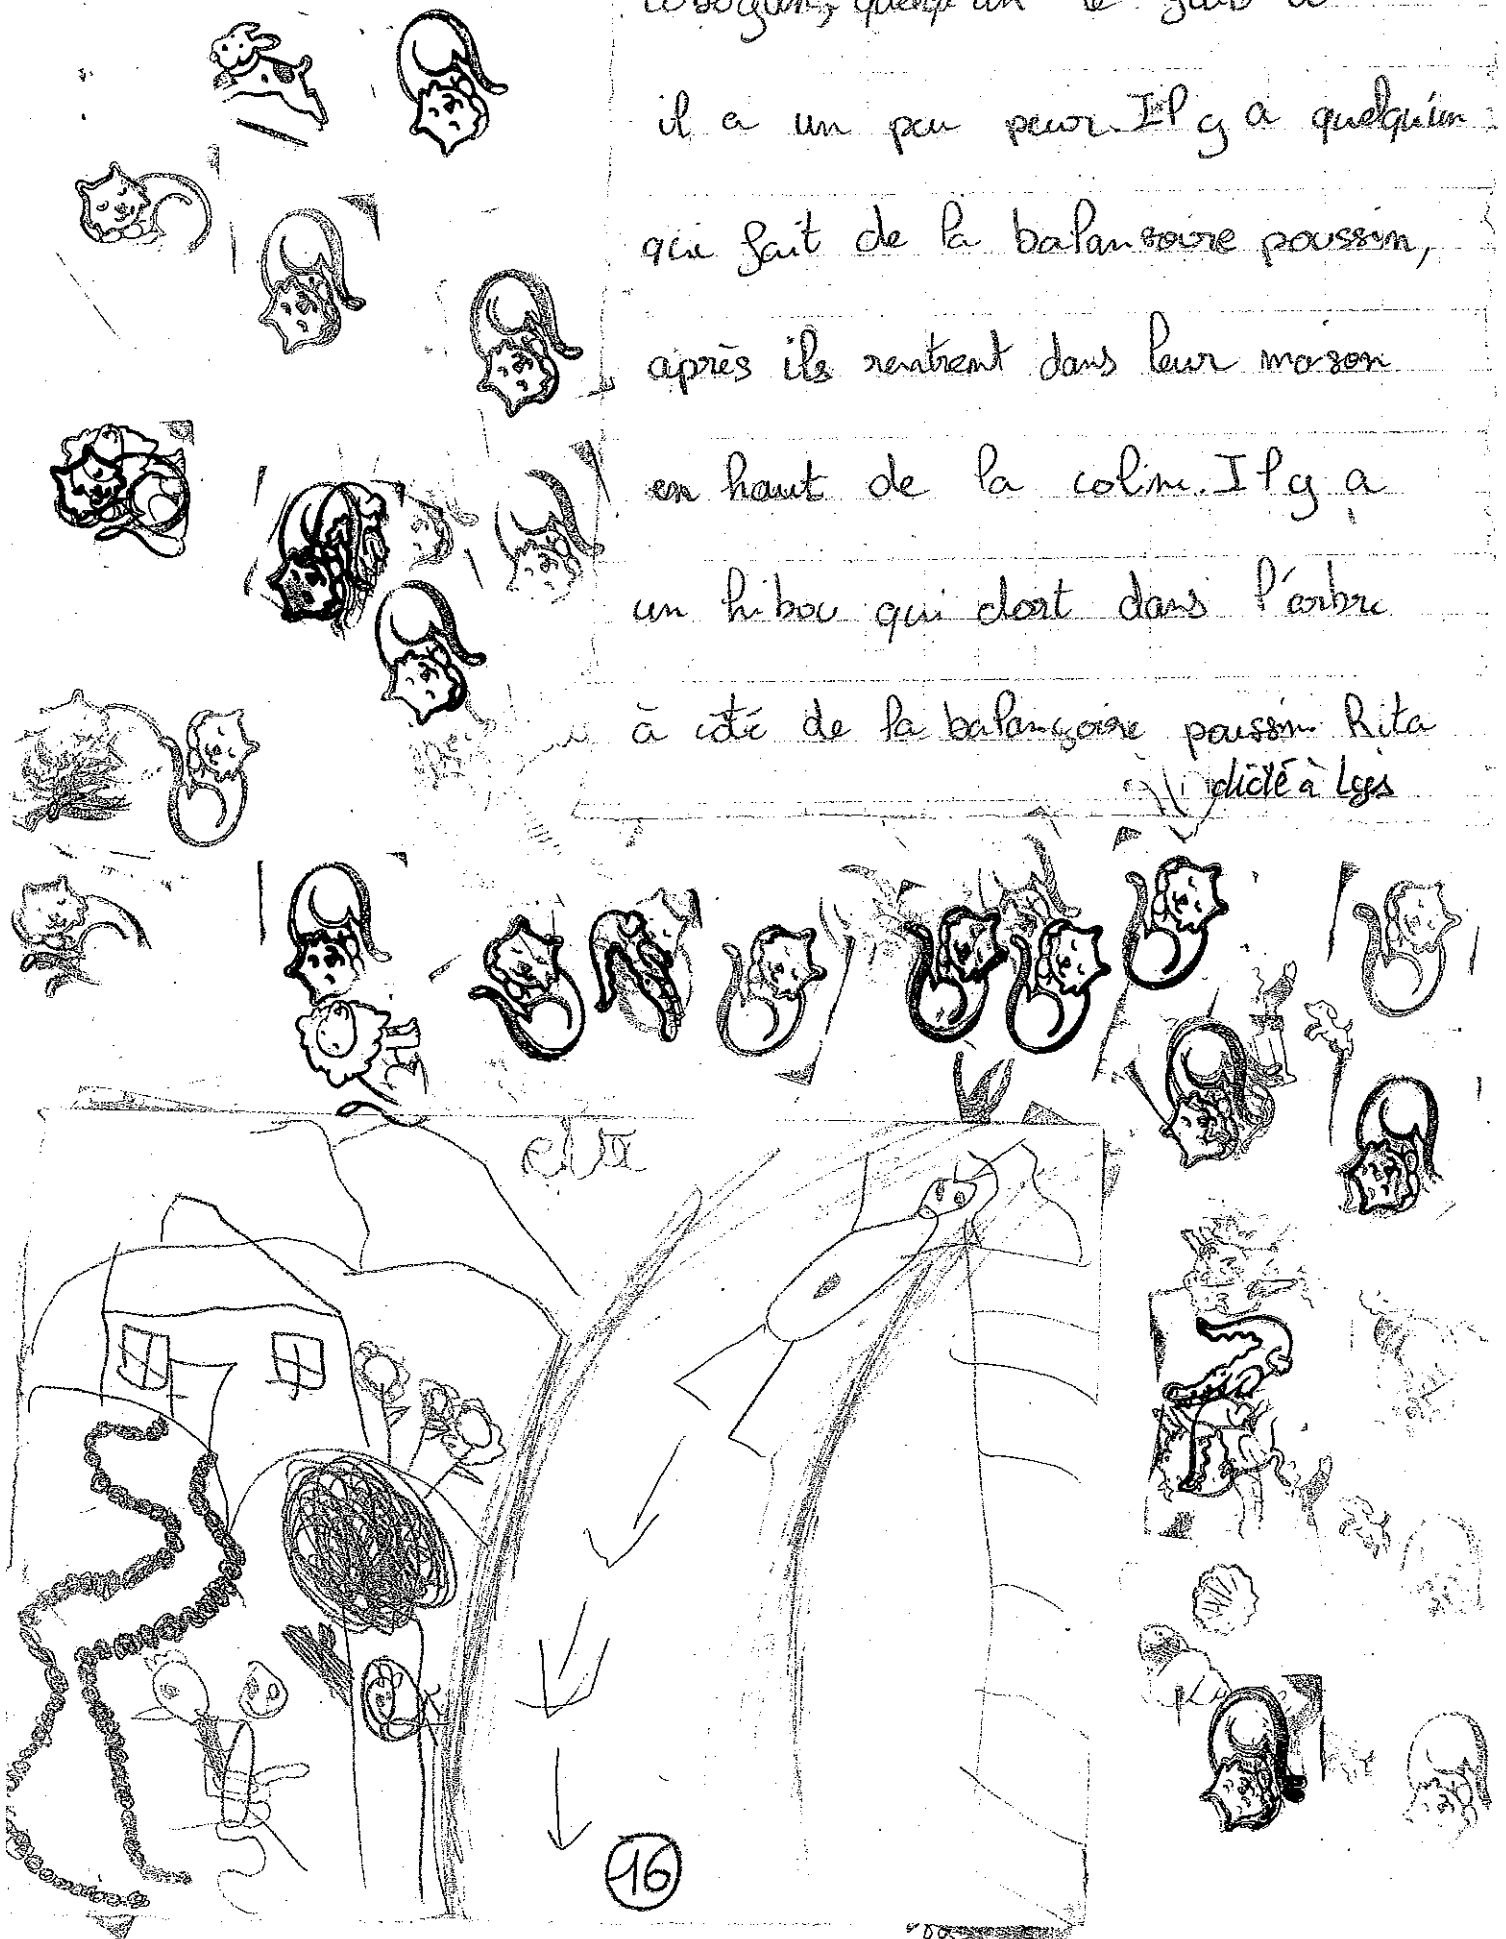 toboggan, quelqu'un le
il a un peu peur. Il y a quelqu'un
qui fait de la balansoire poussin,
après ils rentrent dans leur maison
en haut de la coline. Il y a
un hibou qui dort dans l'arbre
à côté de la balançoire poussin Rita
dicté à Lys
16